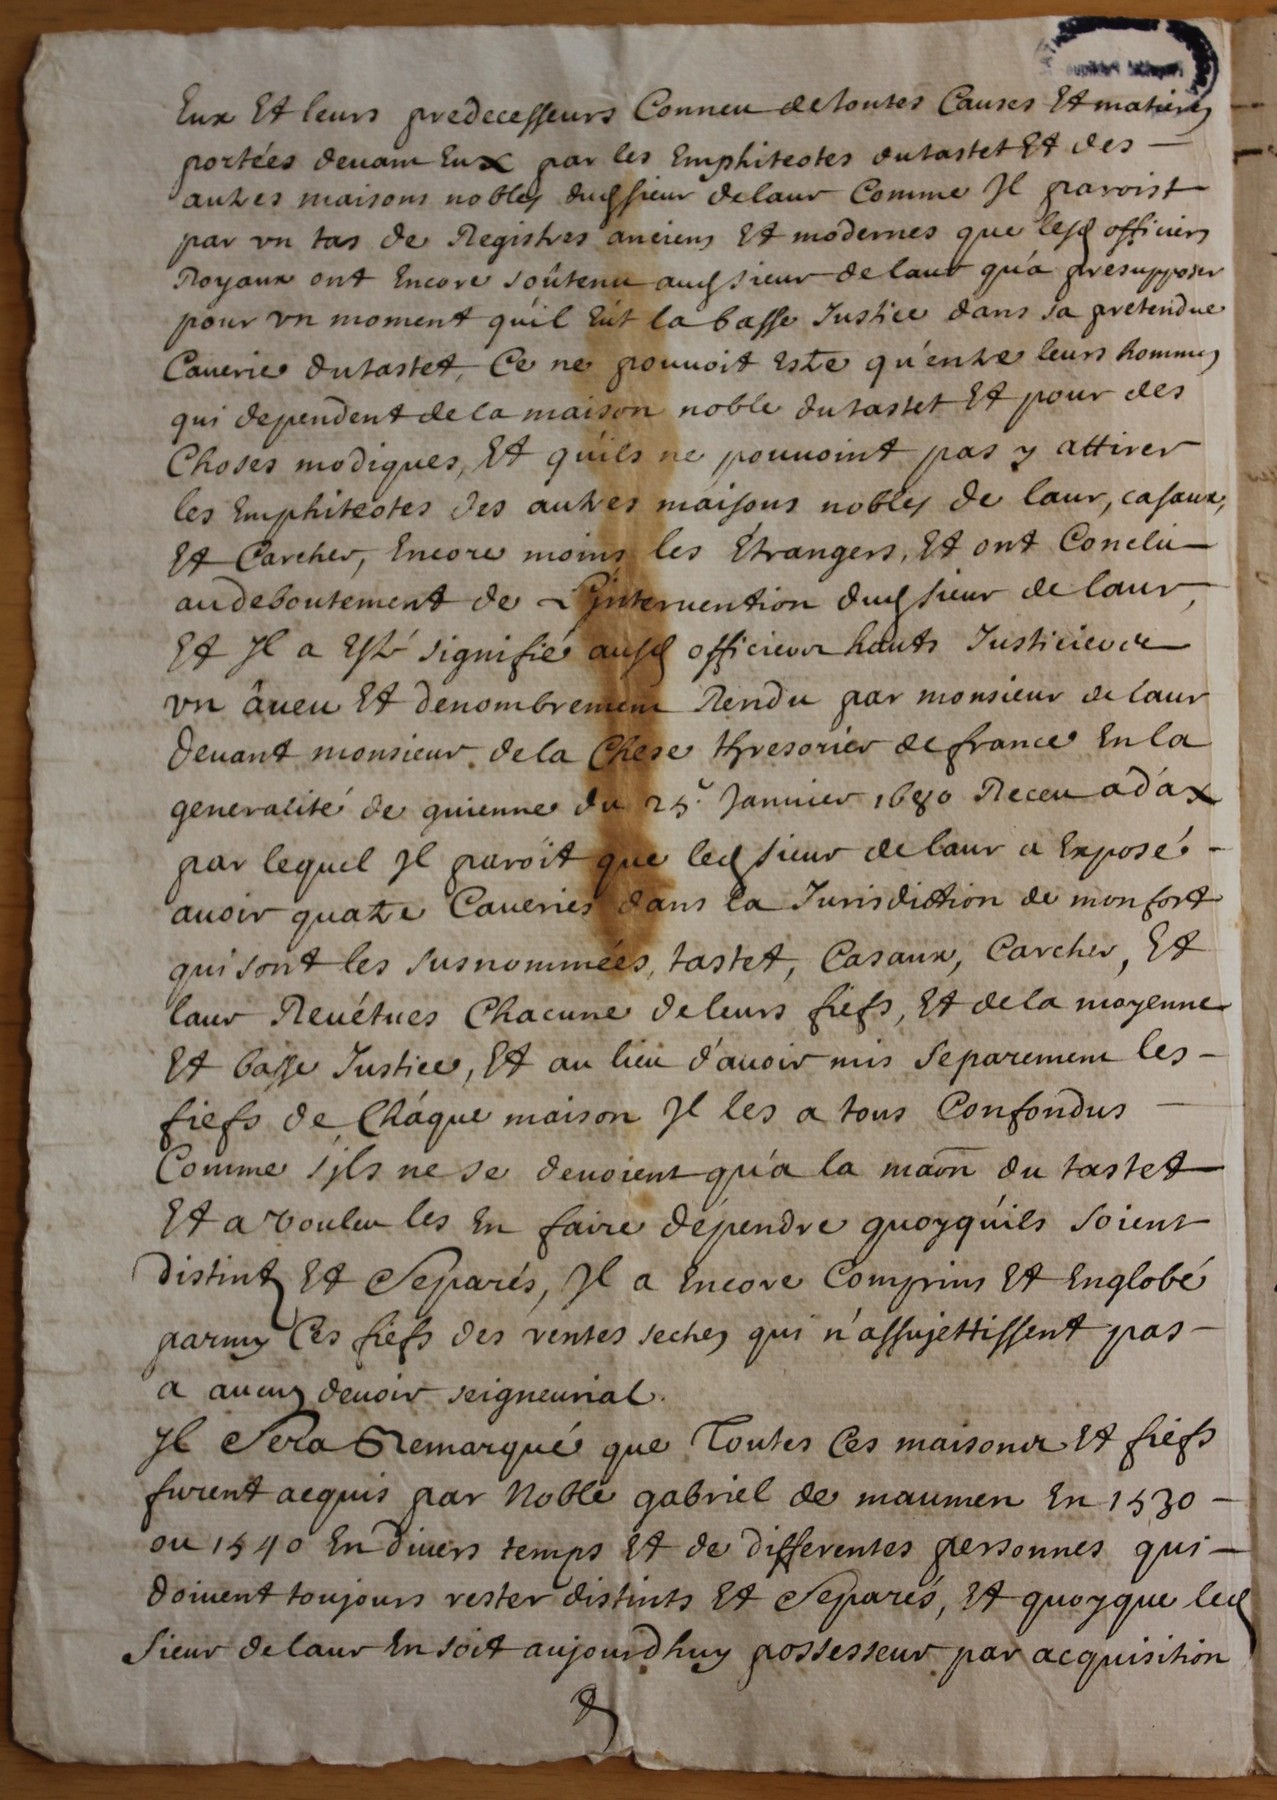 Eux Et leurs predecesseurs Conneu de toutes Causes Et matieres
portées devant Eux par les Emphiteotes du tastet Et des —
autres maisons nobles dud sieur de laur Comme Jl paroist
par vn tas de Registres anciens Et modernes que lesd officiers
Royaux ont Encore soûtenu aud sieur de laur qu'a presupposer
pour vn moment qu'il Eut la basse Justice dans sa pretendue
Caverie du tastet, Ce ne pouvoit Estre qu'entre leurs hommes
qui dependent de la maison noble du tastet Et pour des
Choses modiques, Et qu'ils ne pouvoint pas y attirer
les Emphiteotes des autres maisons nobles de laur, casaux,
Et Carcher, Encore moins les Étrangers, Et ont Conclu —
au deboutement de L'jntervention dud sieur de laur,
Et Jl a Esté signifié ausd officiers hauts Justiciers
vn âveu Et denombrement Rendu par monsieur de laur
devant monsieur de la Chese thresorier de france En la
generalité de guienne du 25e Janvier 1680 Receu a dax
par lequel Jl paroit que led sieur de laur a Exposé —
avoir quatre Caveries dans la Jurisdiction de monfort
qui sont les susnommées, tastet, Casaux, Carcher, Et
laur Revétues Chacune de leurs fiefs, Et de la moyenne
Et basse Justice, Et au lieu d'avoir mis Separement les —
fiefs de Cháque maison Jl les a tous Confondus —
Comme s'jls ne se devoient qu'a la maon du tastet
Et a vouleu les En faire dépendre quoyqu'ils soient
distints Et Separés, Jl a Encore Comprins Et Englobé
parmy Ces fiefs des rentes seches qui n'assujettissent pas —
a aucun devoir seigneurial.
Jl Sera Remarqué que Toutes Ces maisons Et fiefs
furent acquis par Noble gabriel de maumen En 1530 —
ou 1540 En divers temps Et de differentes personnes qui —
doivent toujours rester distints Et Separés, Et quoyque led
Sieur de laur En soit aujourdhuy possesseur par acquisition